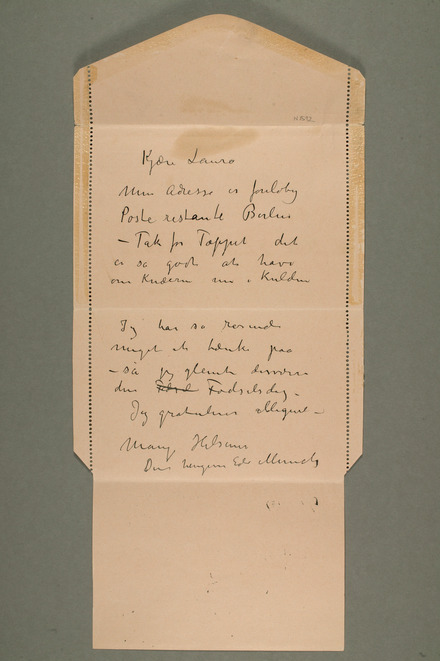 Kjære Laura
Min Adresse er foreløbig
Poste restante Berlin
– Tak for Tæppet det
er så godt at have
om Knæerne nu i Kulden
Jeg har så
meget at tænke paa
– så jeg glemte desværre
din Fødselsdag –
Jeg gratulerer alligevel –
Mange Hilsener
Din hengivne Edv Munch